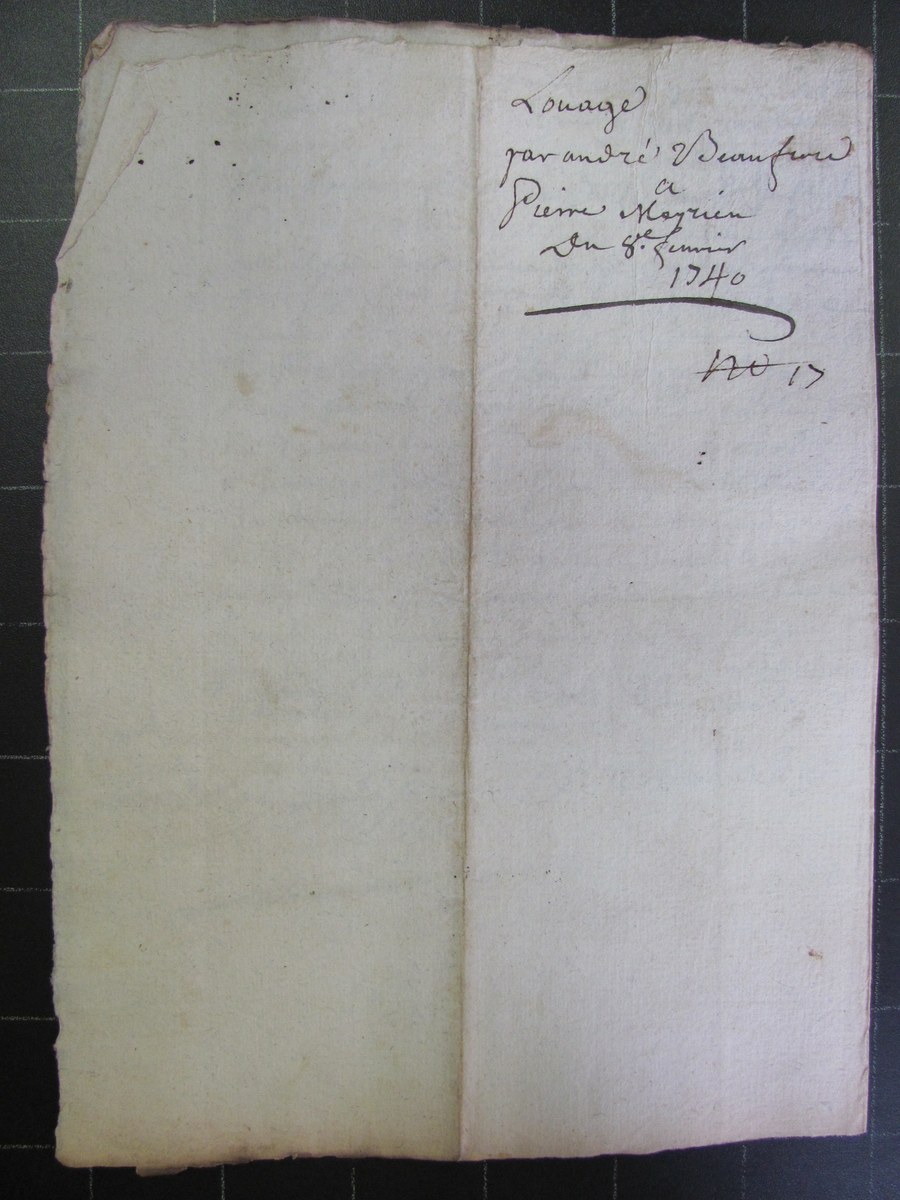 Louage
par andré Beaufrere
a
Pierre Meyrieu
Du 8e. fevrier
1740
no 17